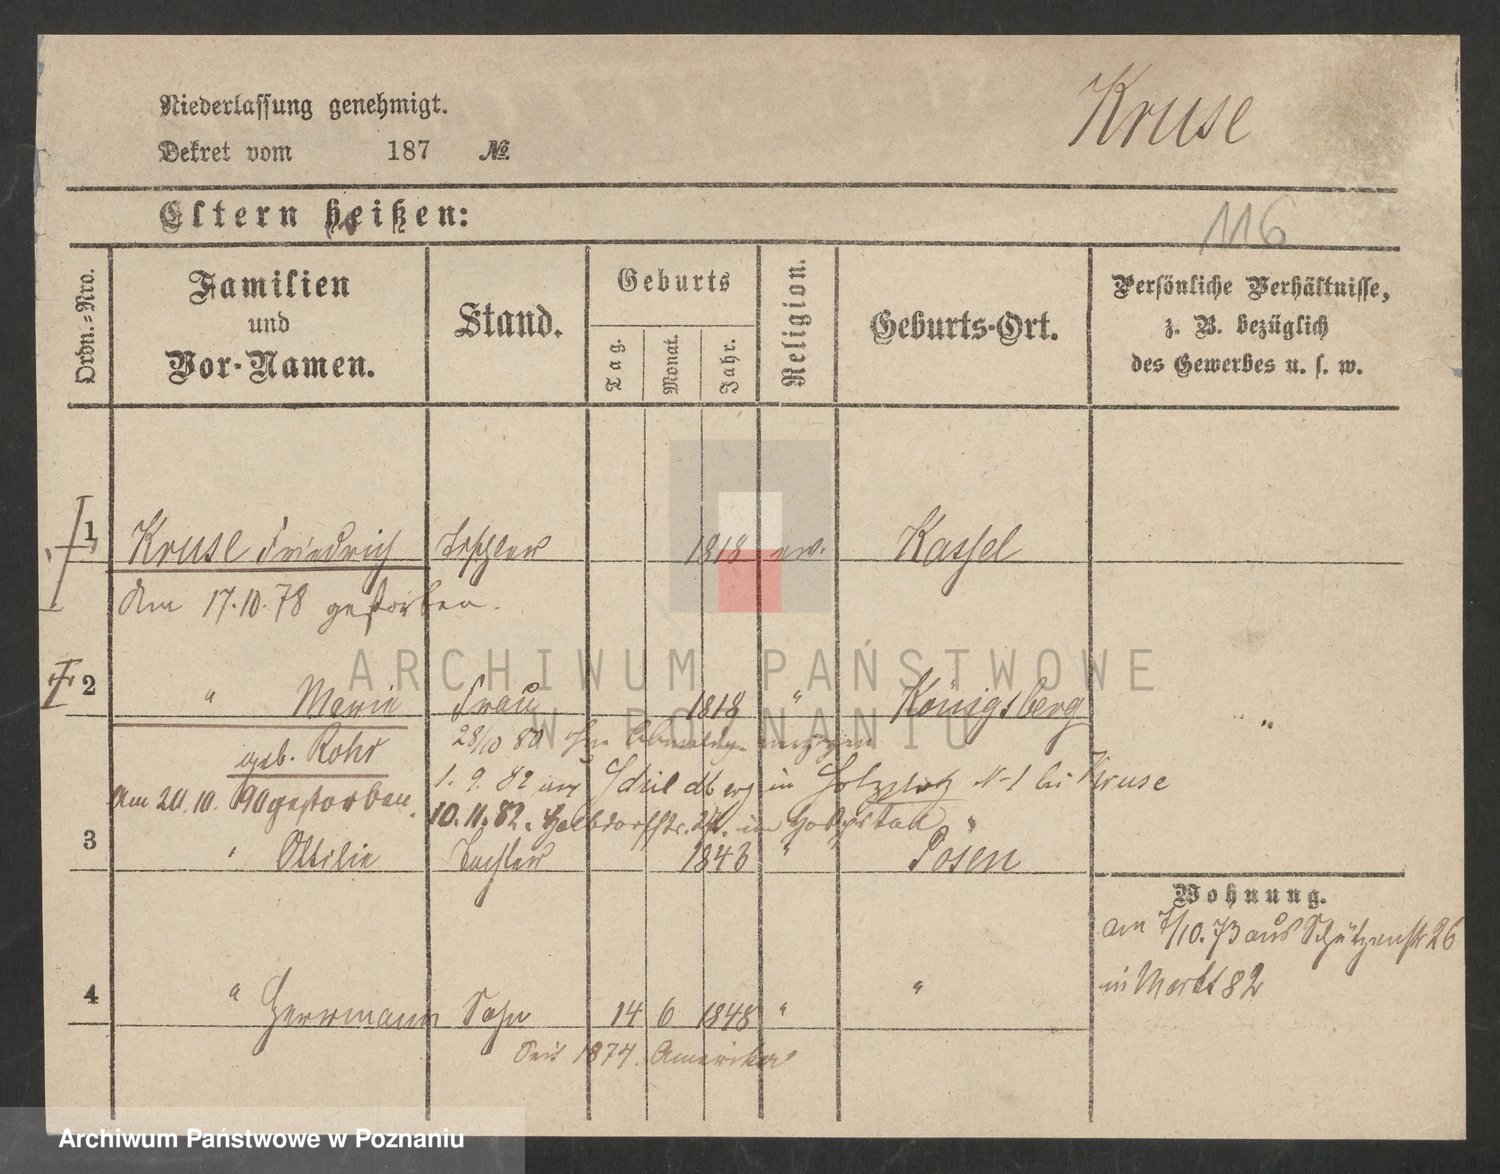 Niederlassung genehmigt.
Kruse
Dekret vom 187 No.
Eltern heißen:
116
Ordn.-Nro.
Familien
und
Vor-Namen.
Stand.
Geburts
Tag.
Monat.
Jahr.
Religion.
Geburts-Ort.
Persönliche Verhältnisse,
z. B. bezüglich
des Gewerbes u. s. w.
1 Kruse Friedrich Tischler 1818 ev. Kassel
Am 17.10.78 gestorben.
ARCHIWUM PAŃSTWOWE
W POZNANIU
2 " Marie Frau 1818 " Königsberg "
geb. Rohr
28/10 80 verzogen
1. 9. 82 in N 1 bei Kruse
Am 20.10.90 gestorben.
10.11.82. im Hospital
3 " Ottilie Tochter 1843 " Posen
Wohnung.
am 7/10.73 aus Schützenstr 26
in Markt 82
4 " Herrmann Sohn 14 6 1848 " "
Seit 1874. Amerika
Archiwum Państwowe w Poznaniu